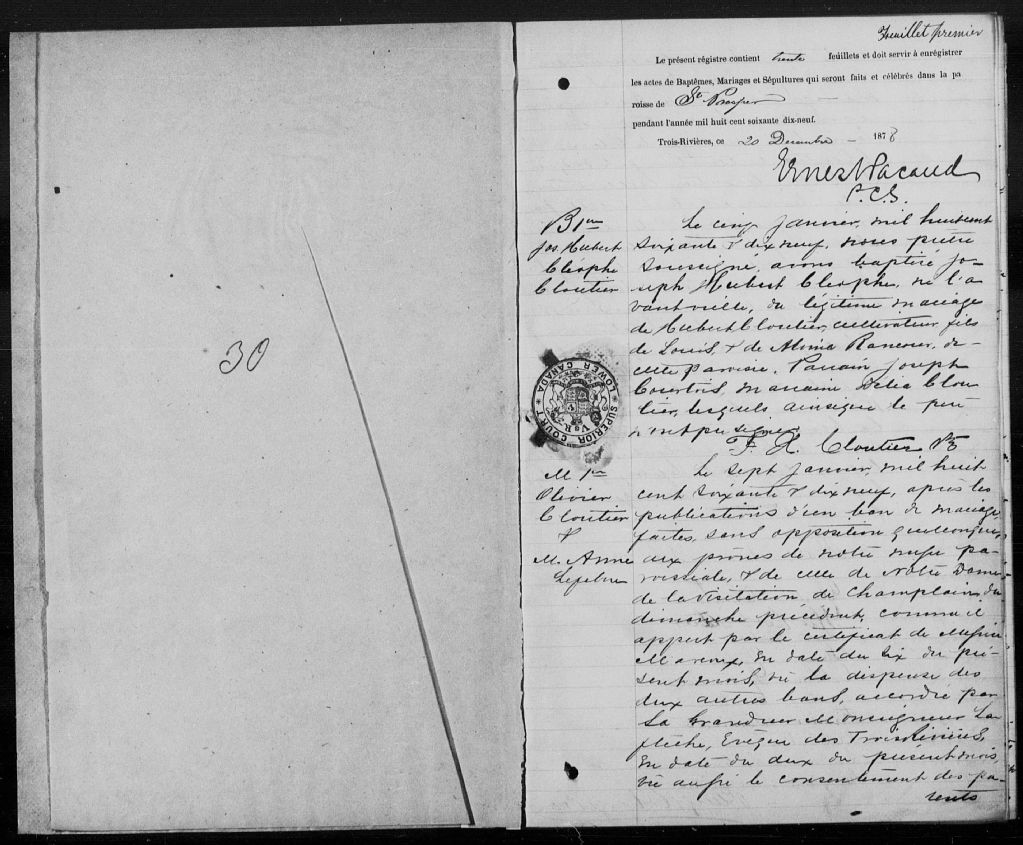 30
Feuillet premier
Le présent régistre contient trente feuillets et doit servir à enrégistrer
les actes de Baptêmes, Mariages et Sépultures qui seront faits et célébrés dans la pa
roisse de St. Prosper
pendant l'année mil huit cent soixante dix-neuf.
Trois-Rivières, ce 20 Decembre 1878
Ernest Pacaud
P.C.S.
B 1er
Jos. Hubert
Cléophe
Cloutier
Le cinq janvier, mil huit cent
soixante & dix neuf, nous prêtre
soussigné, avons baptisé Jo-
seph Hubert Cléophe, né l'a
vant veille, du légitime mariage
de Hubert Cloutier, cultivateur, fils
de Louis, & de Rancour, de
cette paroisse. Parrain Joseph
marraine Délia Clou
tier, lesquels, ainsi que le père
n'ont pu signer
F. X. Cloutier Ptre
SUPERIOR COURT * LOWER CANADA *
V R
M 1er
Olivier
Cloutier
&
M. Anne
Lefebvre
Le sept janvier, mil huit
cent soixante & dix neuf, après les
publications d'un ban de mariage
faites, sans opposition quelconque,
aux prônes de notre messe pa-
roissiale, & de celle de Notre Dame
de la Visitation de Champlain, du
dimanche précédent, comme il
appert par le certificat de Messire
Marcoux, en date du six du pré-
sent mois, vu la dispense des
deux autres bans, accordée par
Sa Grandeur Monseigneur La
flèche, Evêque des Trois Rivières,
en date du deux du présent mois,
vu aussi le consentement des pa-
rents